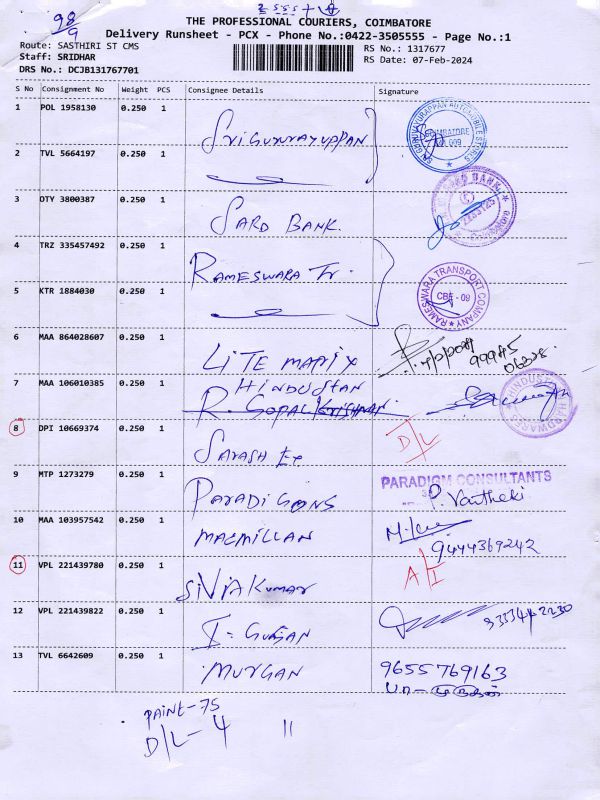 98/9
THE PROFESSIONAL COURIERS, COIMBATORE
Delivery Runsheet - PCX - Phone No.:0422-3505555 - Page No.:1
Route: SASTHIRI ST CMS
RS No.: 1317677
Staff: SRIDHAR
RS Date: 07-Feb-2024
DRS No.: DCJB131767701
S No Consignment No Weight PCS Consignee Details Signature
1 POL 1958130 0.250 1 SRIGURUVAYUPPAN
COIMBATORE
2 TVL 5664197 0.250 1
3 OTY 3800387 0.250 1 SARD BANK.
4 TRZ 335457492 0.250 1 RAMESWARA Tr.
5 KTR 1884030 0.250 1 RAMESWARA TRANSPORT COMPANY CBE-09
6 MAA 864028607 0.250 1 LITE MARIX
7 MAA 106010385 0.250 1 HINDUSTAN HARDWARES
R. GOPAL KRISHNAN
8 DPI 10669374 0.250 1 D/L
9 MTP 1273279 0.250 1 PARADIGM CONSULTANTS
10 MAA 103957542 0.250 1 MACMILLAN
9444369242
11 VPL 221439780 0.250 1 SIVA Kumar A/I
12 VPL 221439822 0.250 1
13 TVL 6642609 0.250 1 MURGAN 9655769163
பா-முருகன்
PAINT-75
D/L-4 11